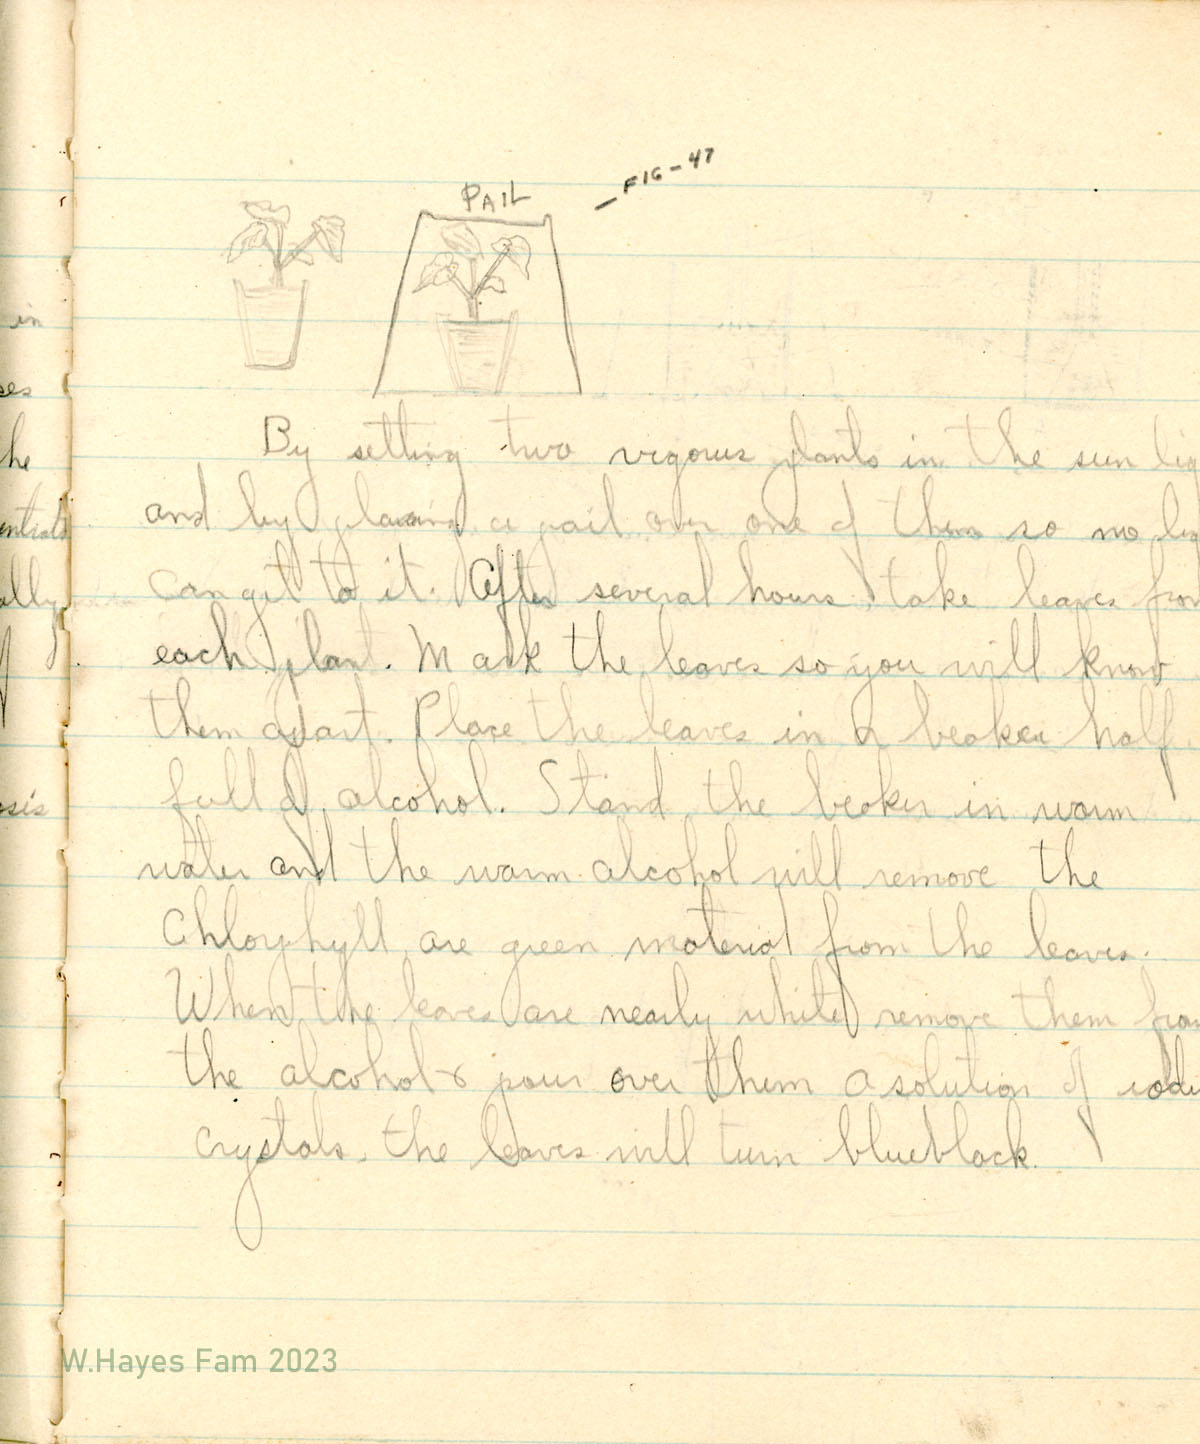 FIG-47
PAIL
in
ses
he
ally
sis
By setting two vigorus plants in the sun lig
and by placing a pail over one of them so no lig
can get to it. After several hours take leaves from
each plant. Mark the leaves so you will know
them apart. Place the leaves in a beaker half
full of alcohol. Stand the beaker in warm
water and the warm alcohol will remove the
Chlorphyll are green material from the leaves.
When the leaves are nearly white remove them from
the alcohol & pour over them a solution of iodi
crystals. the leaves will turn blueblack.
W.Hayes Fam 2023